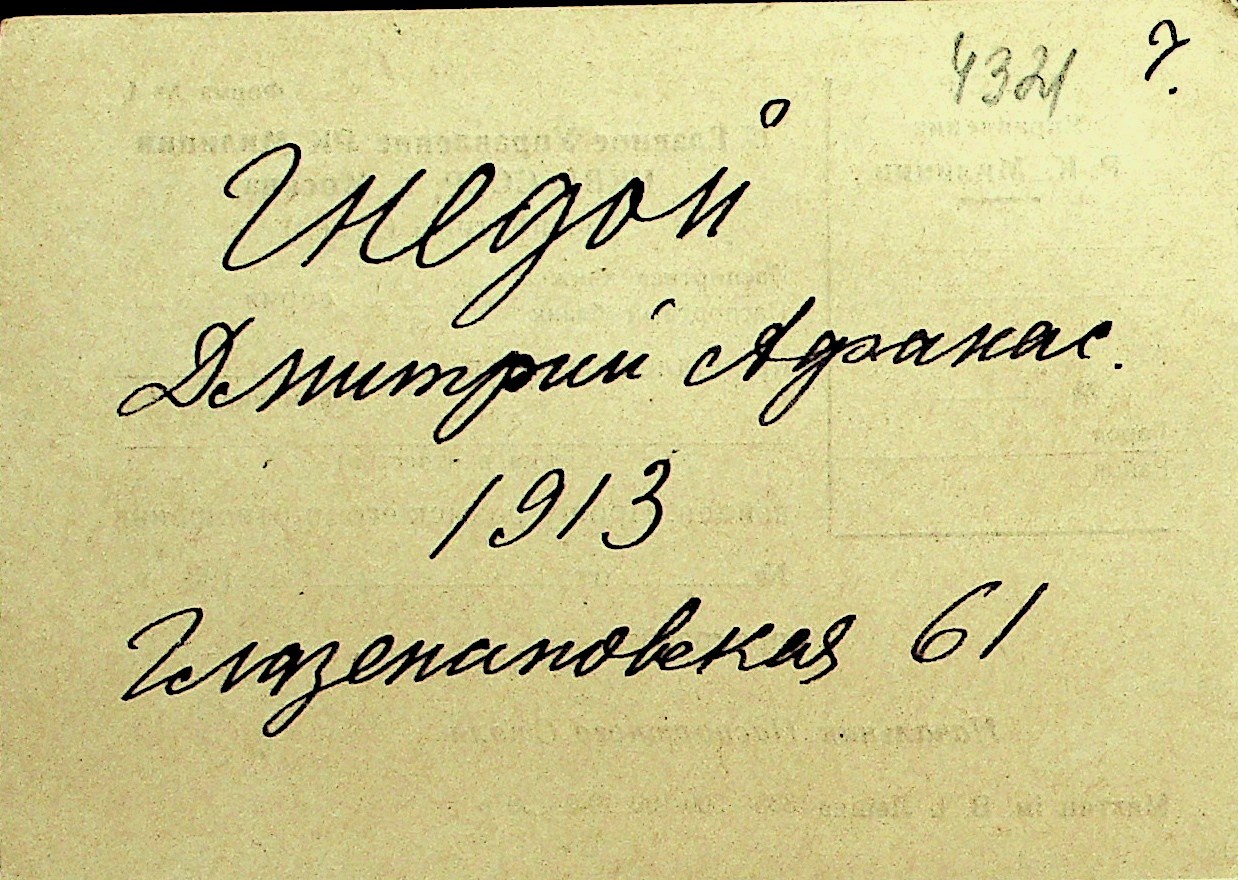 4321 ?
Гнедой
Дмитрий Афанас.
1913
Глазенаповская 61